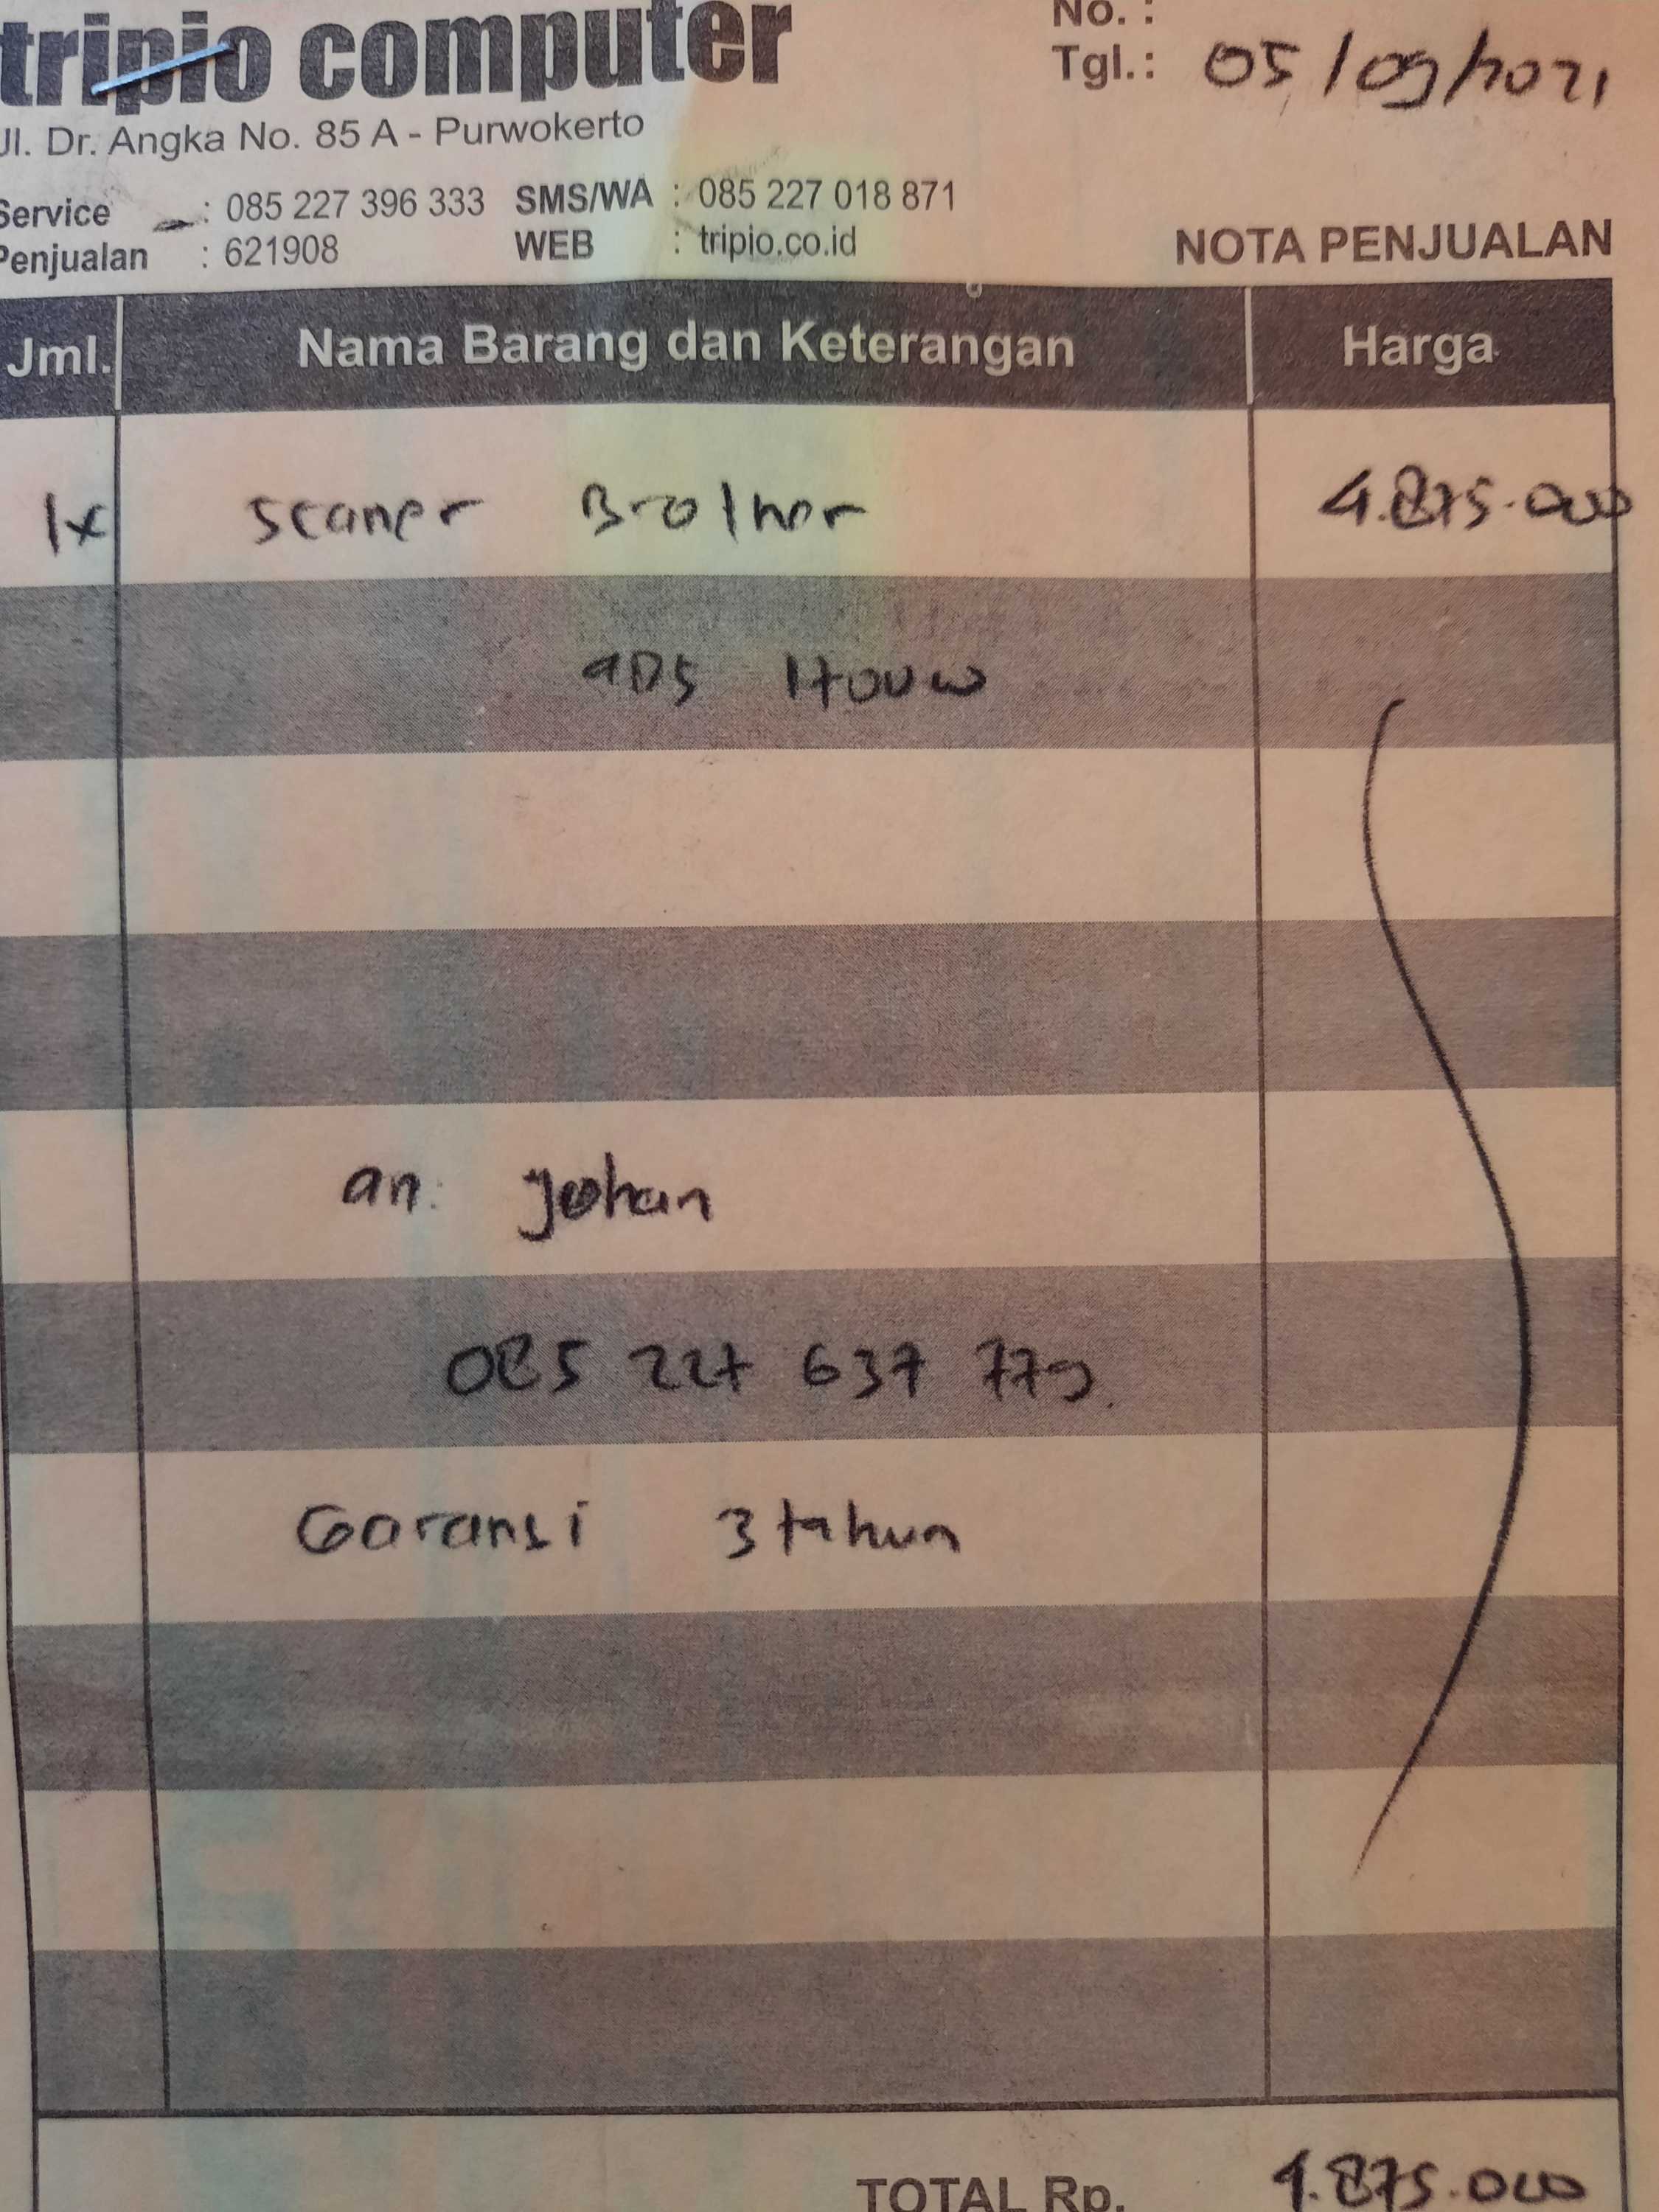 tripio computer
No. :
Tgl.: 05/09/2021
Jl. Dr. Angka No. 85 A - Purwokerto
Service : 085 227 396 333 SMS/WA : 085 227 018 871
Penjualan : 621908 WEB : tripio.co.id
NOTA PENJUALAN
Jml. Nama Barang dan Keterangan Harga
1x Scaner Brother 4.875.000
ADS 1700W
an. Johan
085 227 637 779.
Garansi 3 tahun
TOTAL Rp. 4.875.000